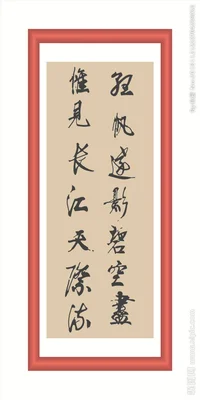 孤帆遠影碧空盡
惟見長江天際流